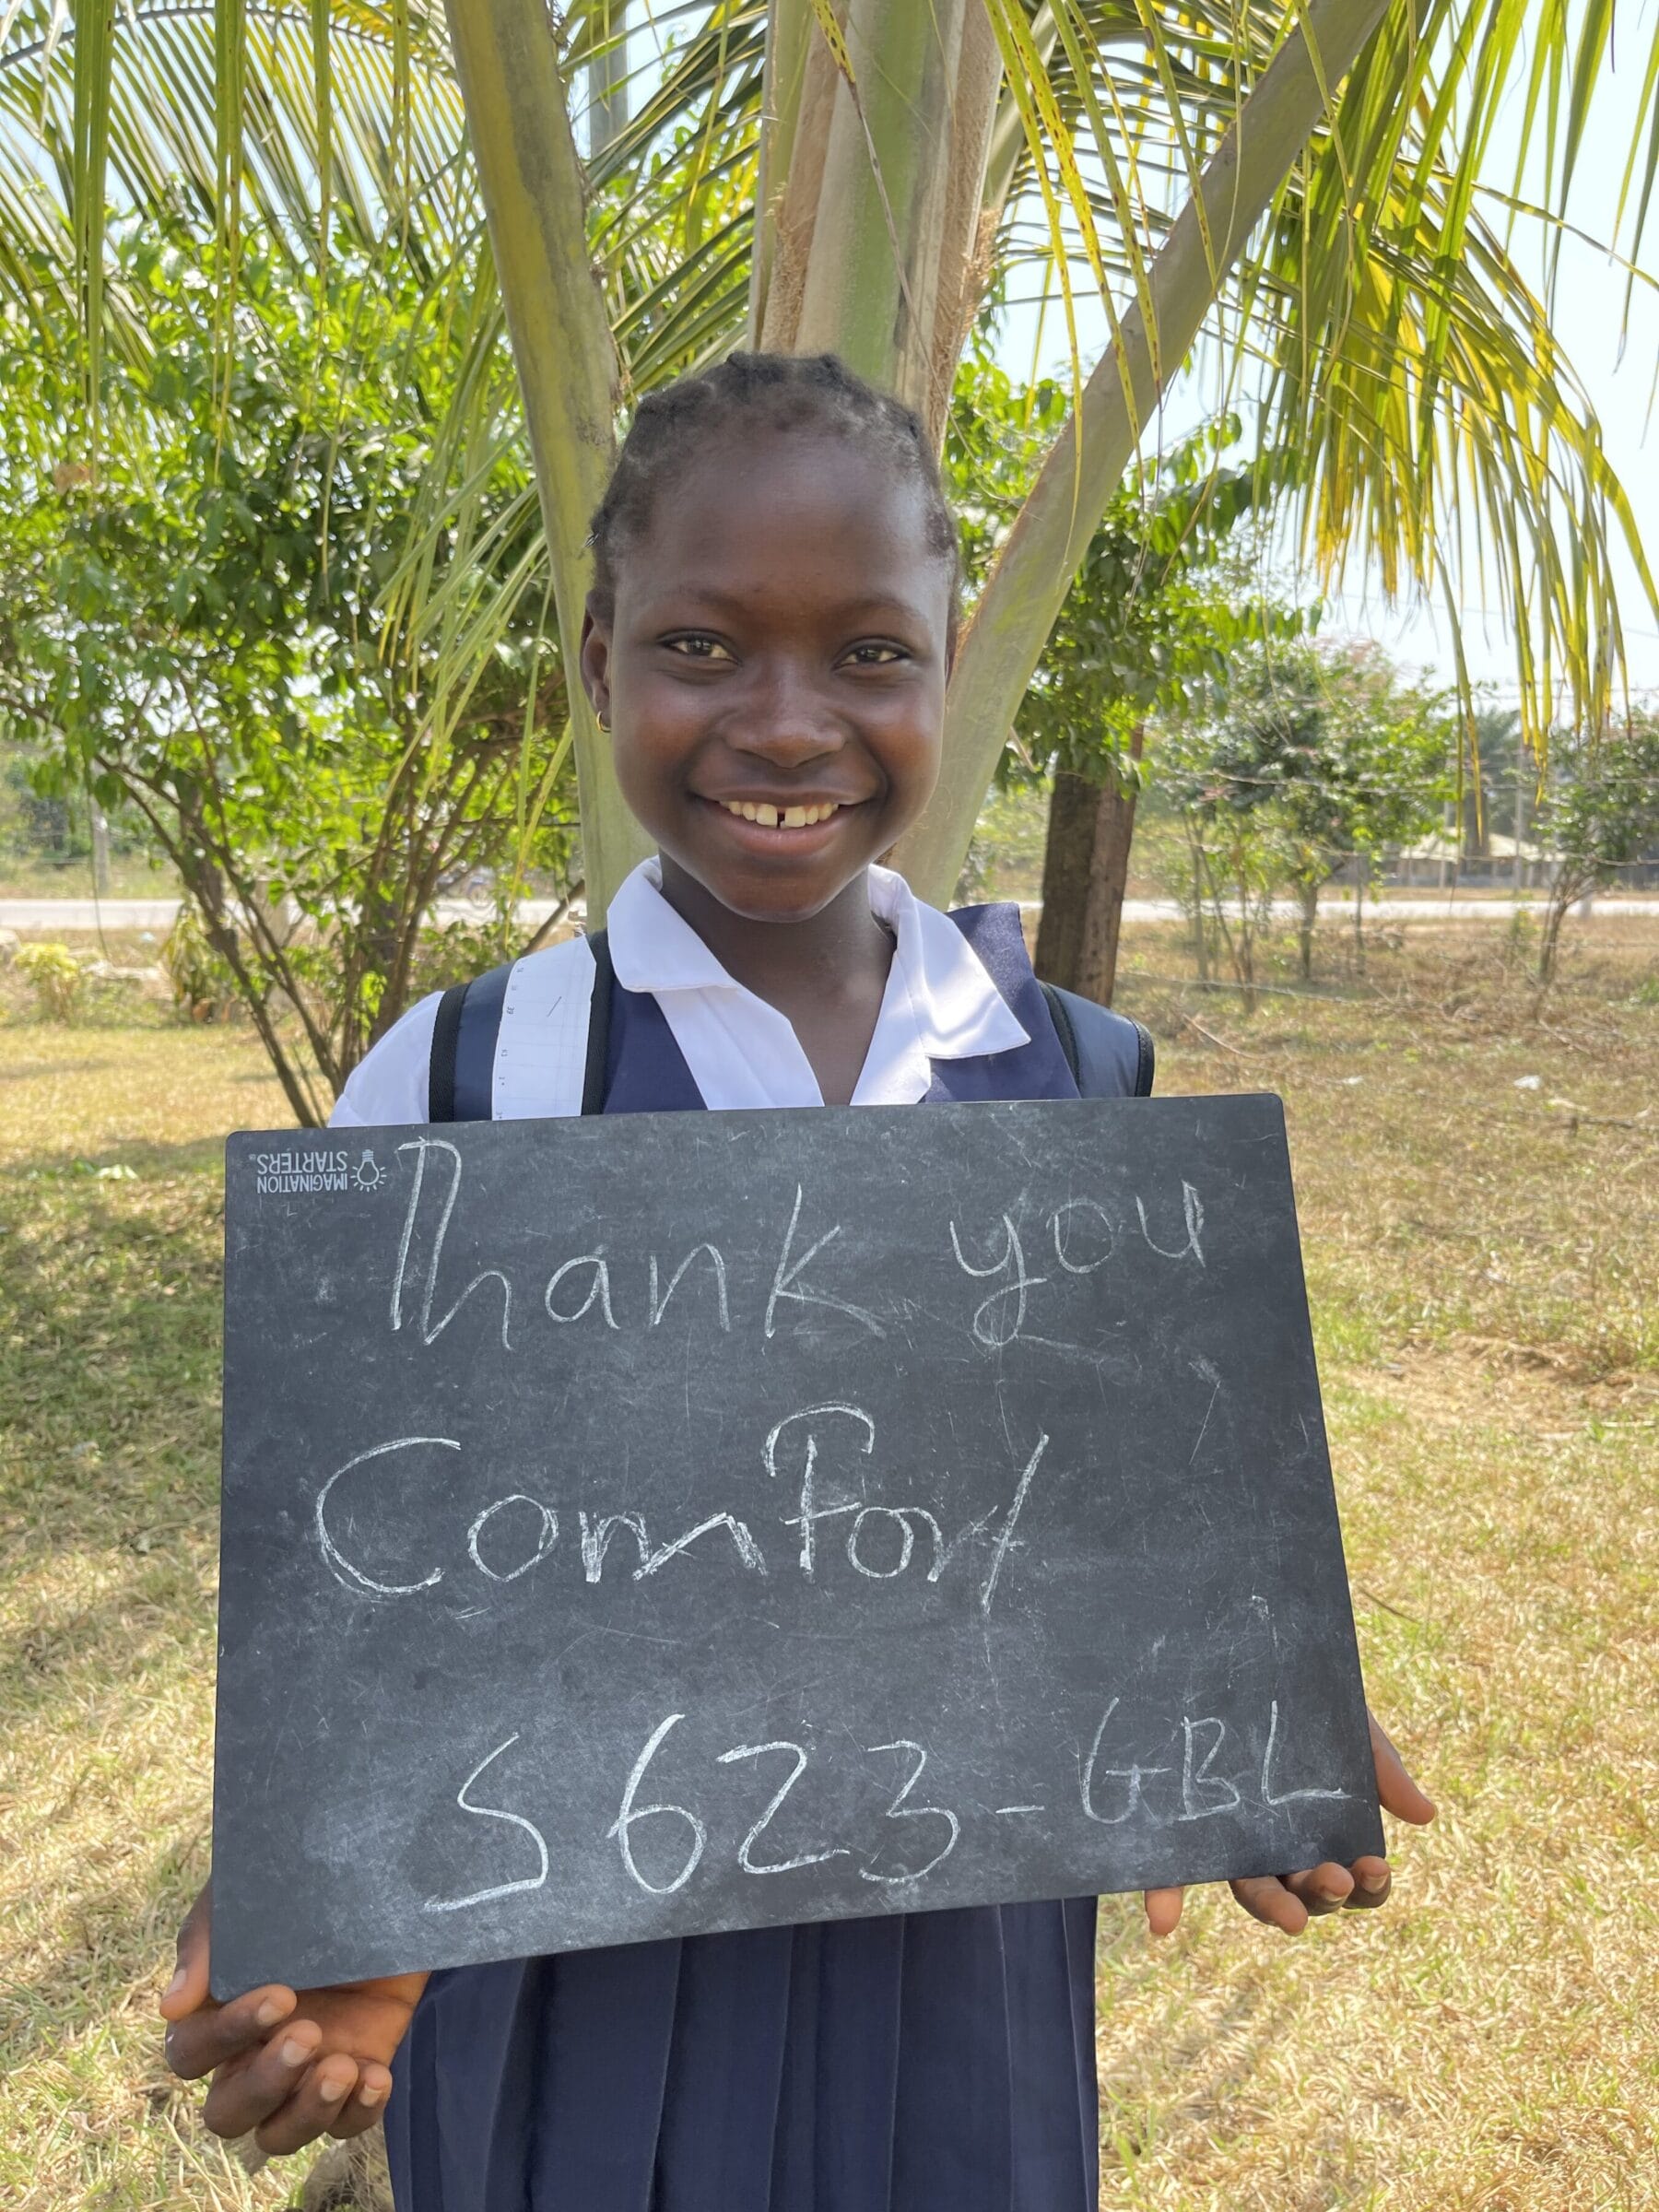 IMAGINATION
STARTERS
Thank you
Comfort
S623-GBL